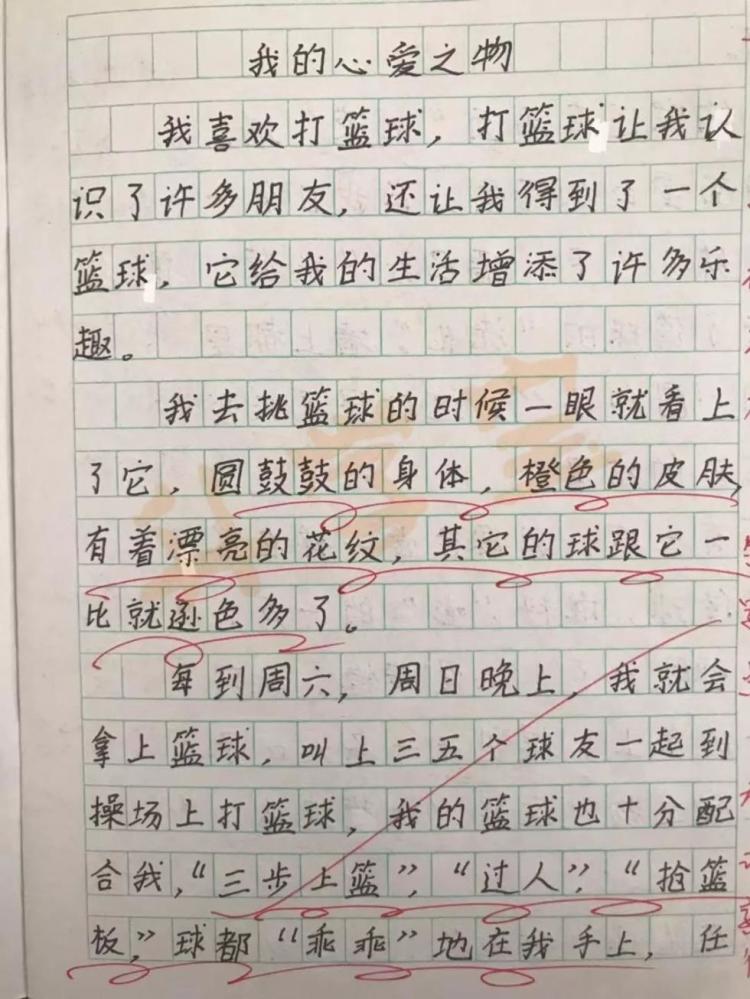 我的心爱之物
我喜欢打篮球，打篮球让我认
识了许多朋友，还让我得到了一个
篮球，它给我的生活增添了许多乐
趣。
我去挑篮球的时候一眼就看上
了它，圆鼓鼓的身体，橙色的皮肤，
有着漂亮的花纹，其它的球跟它一
比就逊色多了。
每到周六，周日晚上，我就会
拿上篮球，叫上三五个球友一起到
操场上打篮球，我的篮球也十分配
合我，“三步上篮”，“过人”，“抢篮
板，”球都“乖乖”地在我手上，任